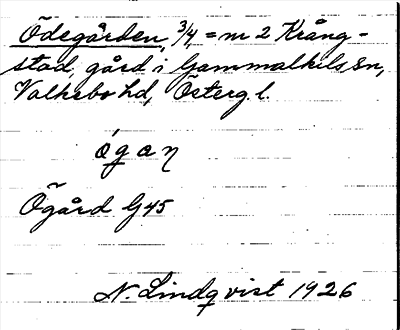 Ödegården, 3/4, = nr 2 Krång-
stad, gård i Gammalkils sn,
Valkebo hd, Österg. l.
ógaŋ
Ögård G45
N. Lindqvist 1926